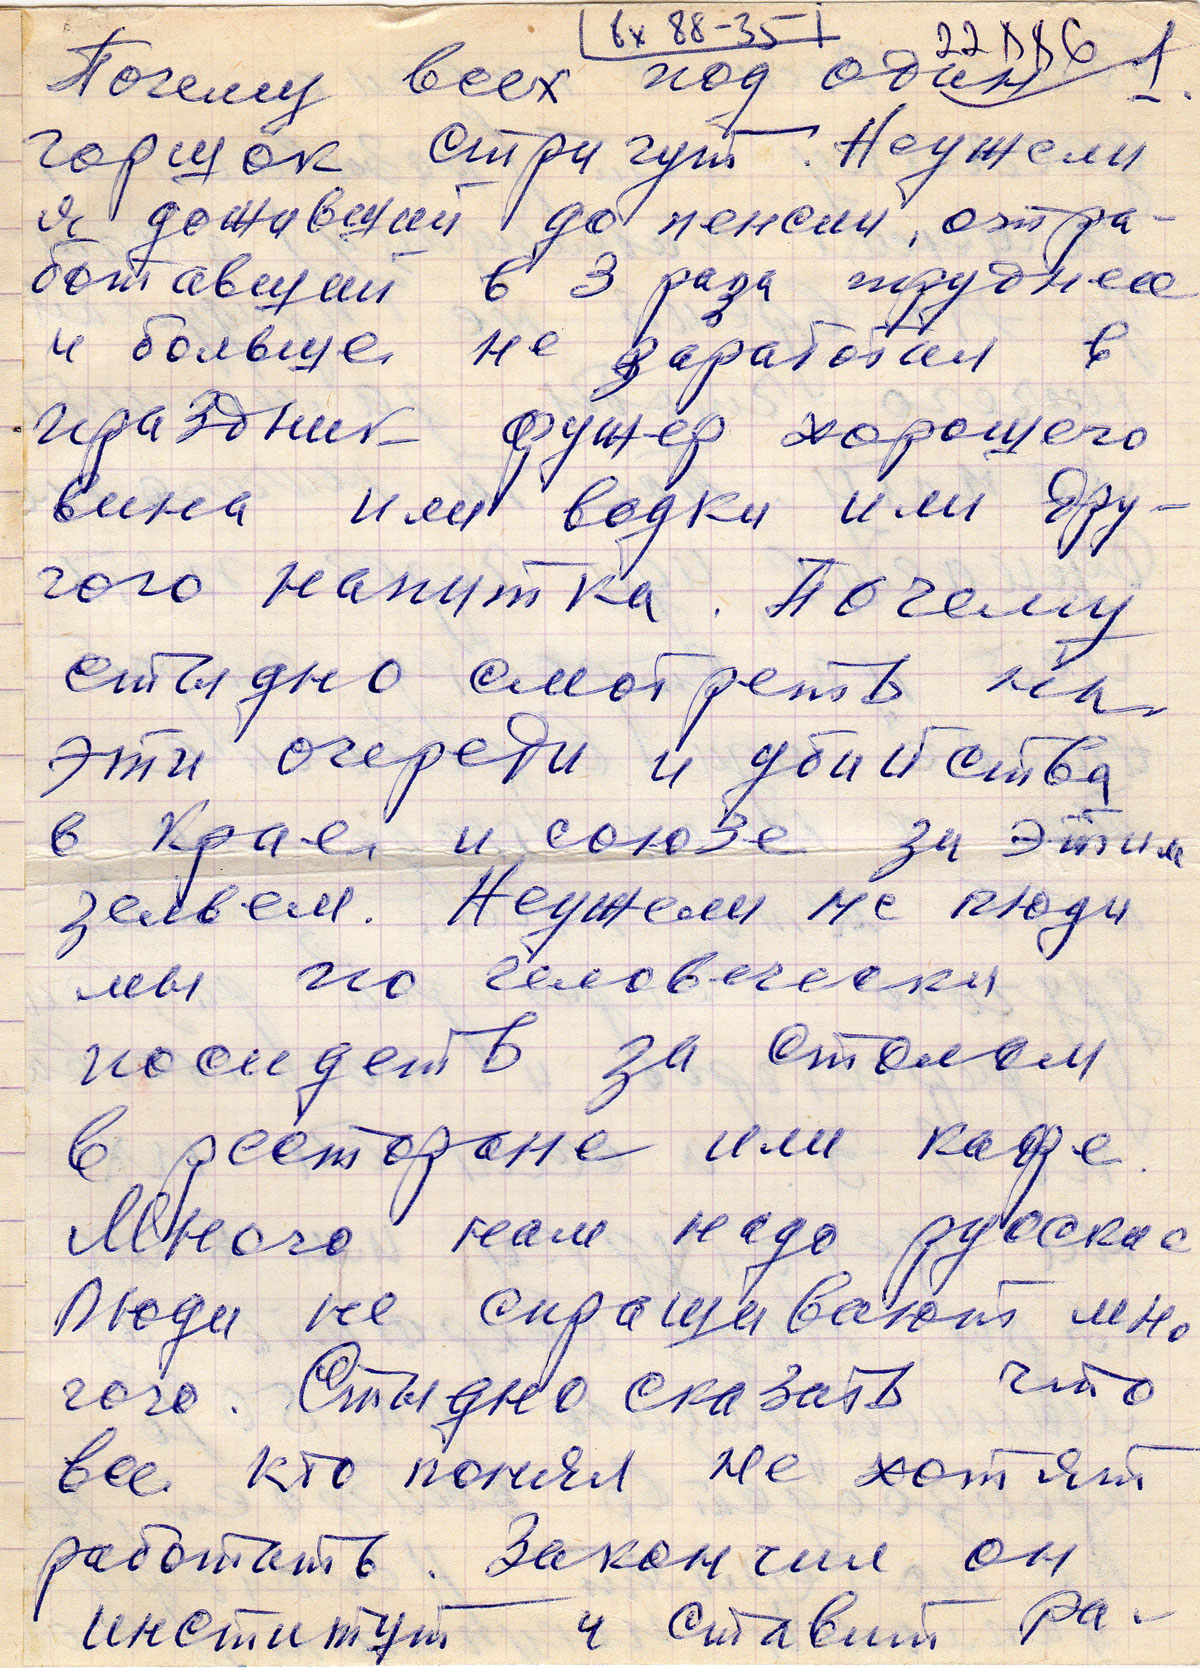 вх 88-35
1.
Почему всех под один
горшок стригут. Неужели
я доживший до пенсии, отра-
ботавший в 3 раза труднее
и больше не заработал в
праздник фужер хорошего
вина или водки или дру-
гого напитка. Почему
стыдно смотреть на
эти очереди и убийства
в Крае и союзе за этим
зельем. Неужели не люди
мы по человечески
посидеть за столом
в ресторане или кафе.
Много нам надо русские
люди не спрашивают мно
гого. Стыдно сказать что
все кто понял не хотят
работать. Закончил он
институт и ставит ра-